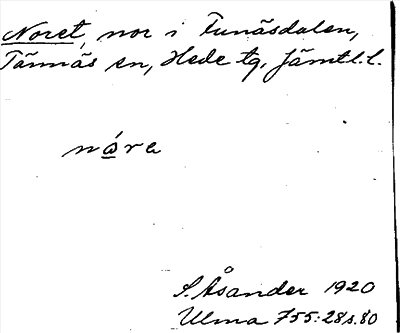 Noret, nor i Funäsdalen,
Tännäs sn, Hede tg, Jämtl. l.
nǻre
S. Åsander 1920
Ulma 755:28 s. 80